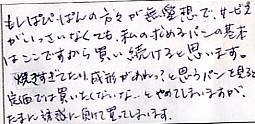 もしぱぴ・ぱんの方々が無愛想で、サービス
がいっさいなくても、私の求めるパンの基本
はここですから買い続けると思います。
焼きすぎてたり、成形があれっ？と思うパンを見ると
定価では買いたくないな、とやめてしまいますが、
たまに誘惑に負けて買ってしまいます。